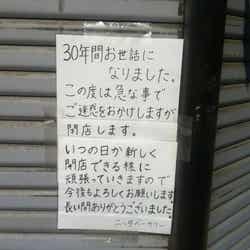 30年間お世話に
なりました。
この度は急な事で
ご迷惑をおかけしますが
閉店します。
いつの日か新しく
開店できる様に
頑張っていきますので
今後もよろしくお願いします
長い間ありがとうございました。